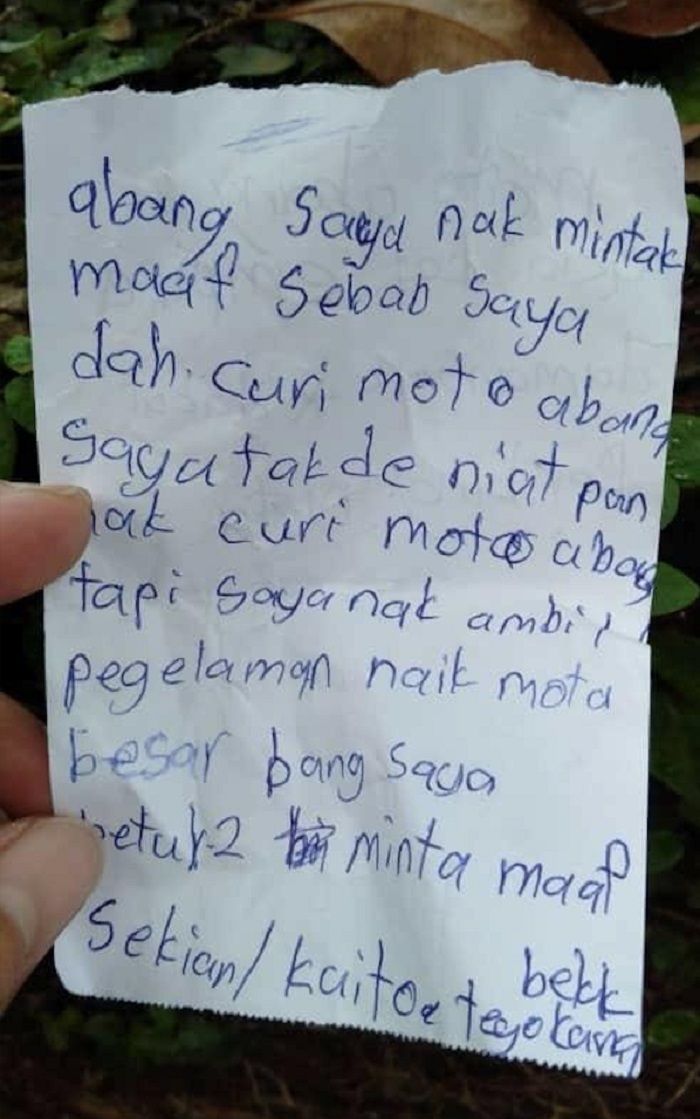 abang saya nak mintak
maaf sebab saya
dah. curi moto abang
saya takde niat pan
nak curi moto abag
tapi saya nak ambil
pegelaman naik mota
besar bang saya
betul-2 minta maaf
sekian/kaito bekk